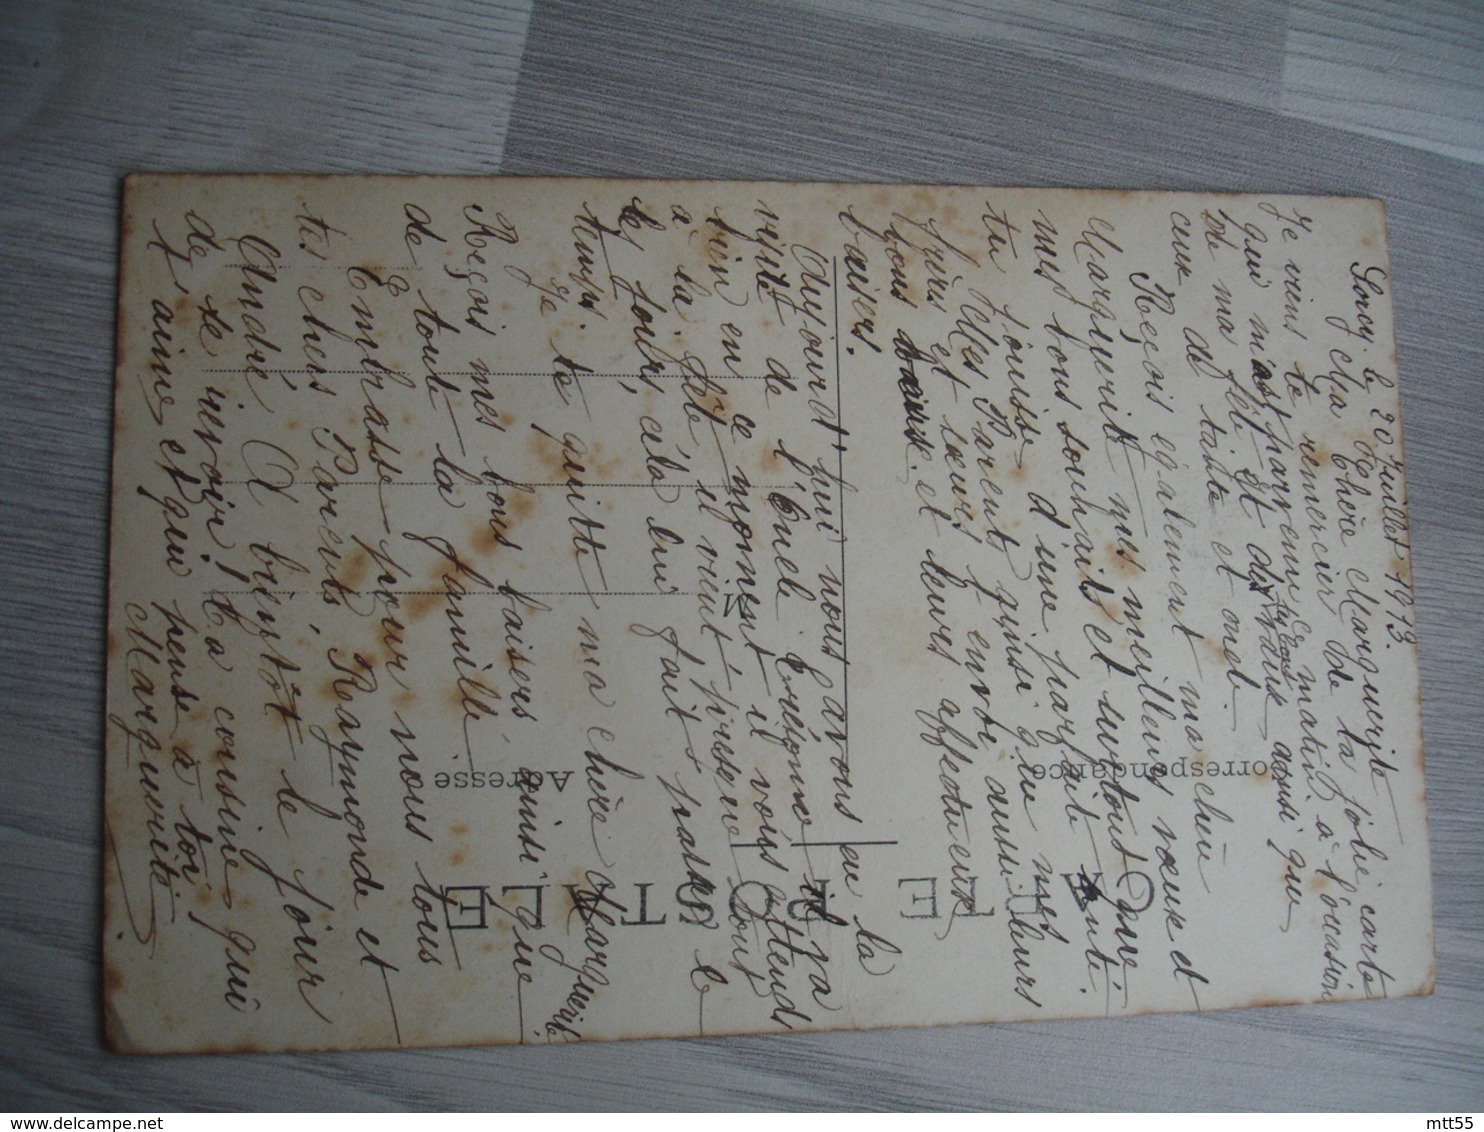 le 20 Juillet 1913.
Ma Chère Marguerite
Je viens te remercier de ta jolie carte
qui m'est parvenue ce matin à l'occasion
de ma fête et dis aussi que
ceux de tante et oncle.
Reçois également ma chère
Marguerite mes meilleurs vœux et
mes bons souhaits et surtout que
tu jouisse d'une parfaite santé.
Mes Parent ainsi que mes
frères et sœurs t'envoie aussi leurs
bons et leurs affectueux
baisers.
Aujourd'hui nous avons eu la
visite de l'Oncle il va
bien en ce moment il vois
à la fête il vient presque tout
les jours, cela lui fait passer le
temps.
Je te quitte ma chère Marguerite
Reçois mes bons baisers ainsi que
de tout la famille.
Embrasse pour nous tous
tes chers Parents, Raymonde et
André. A bientôt le jour
de te revoir! ta cousine qui
t'aime et qui pense à toi
Marguerite
CARTE POSTALE
Correspondance
Adresse
M
mtt55